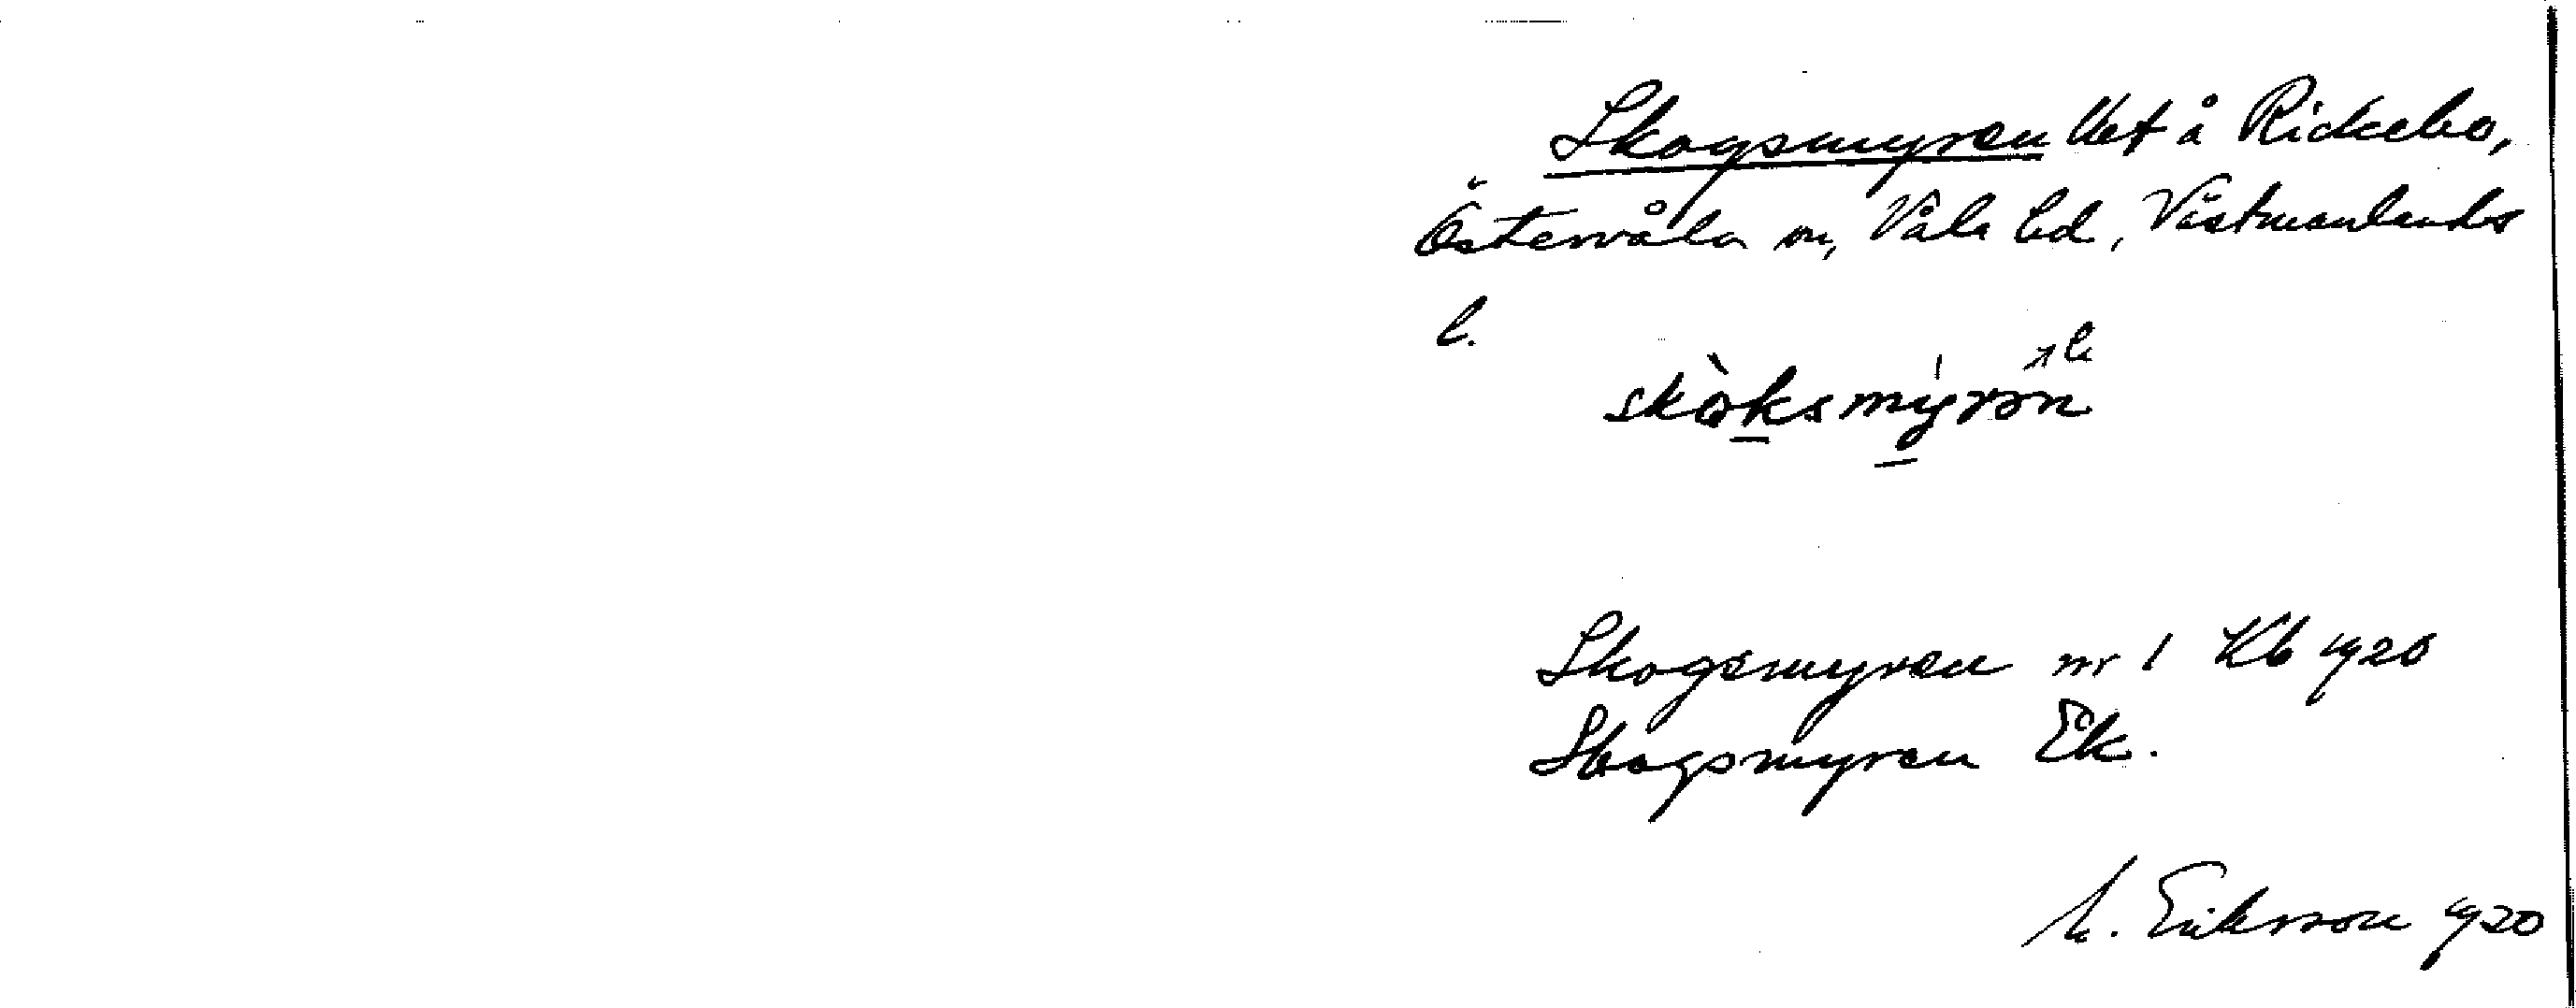 Skogsmyren lht å Rickebo,
Östervåla sn, Våla hd, Västmanlands
l.
skòksmyrən
Skogsmyren nr 1 Kb 1920
Skogsmyren Ek.
M. Eriksson 1920